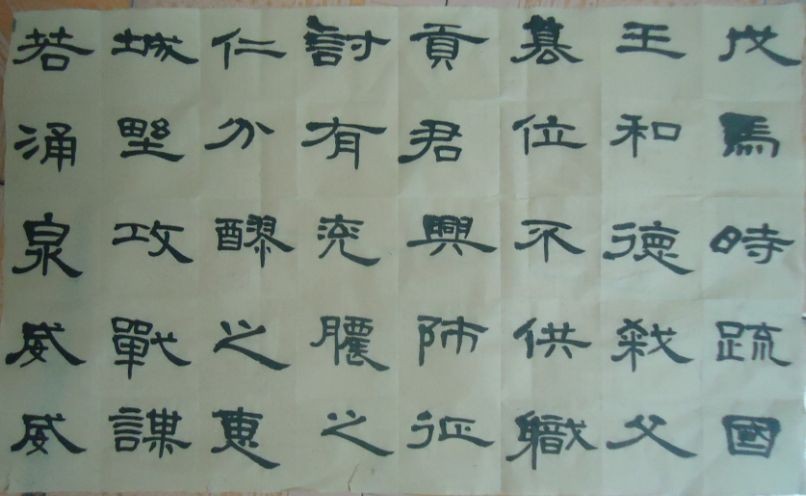 戊馬時疏國
王和德弒父
篡位不供職
貢君興師征
討有兗膿之
仁分醪之惠
城野攻戰謀
若涌泉威威